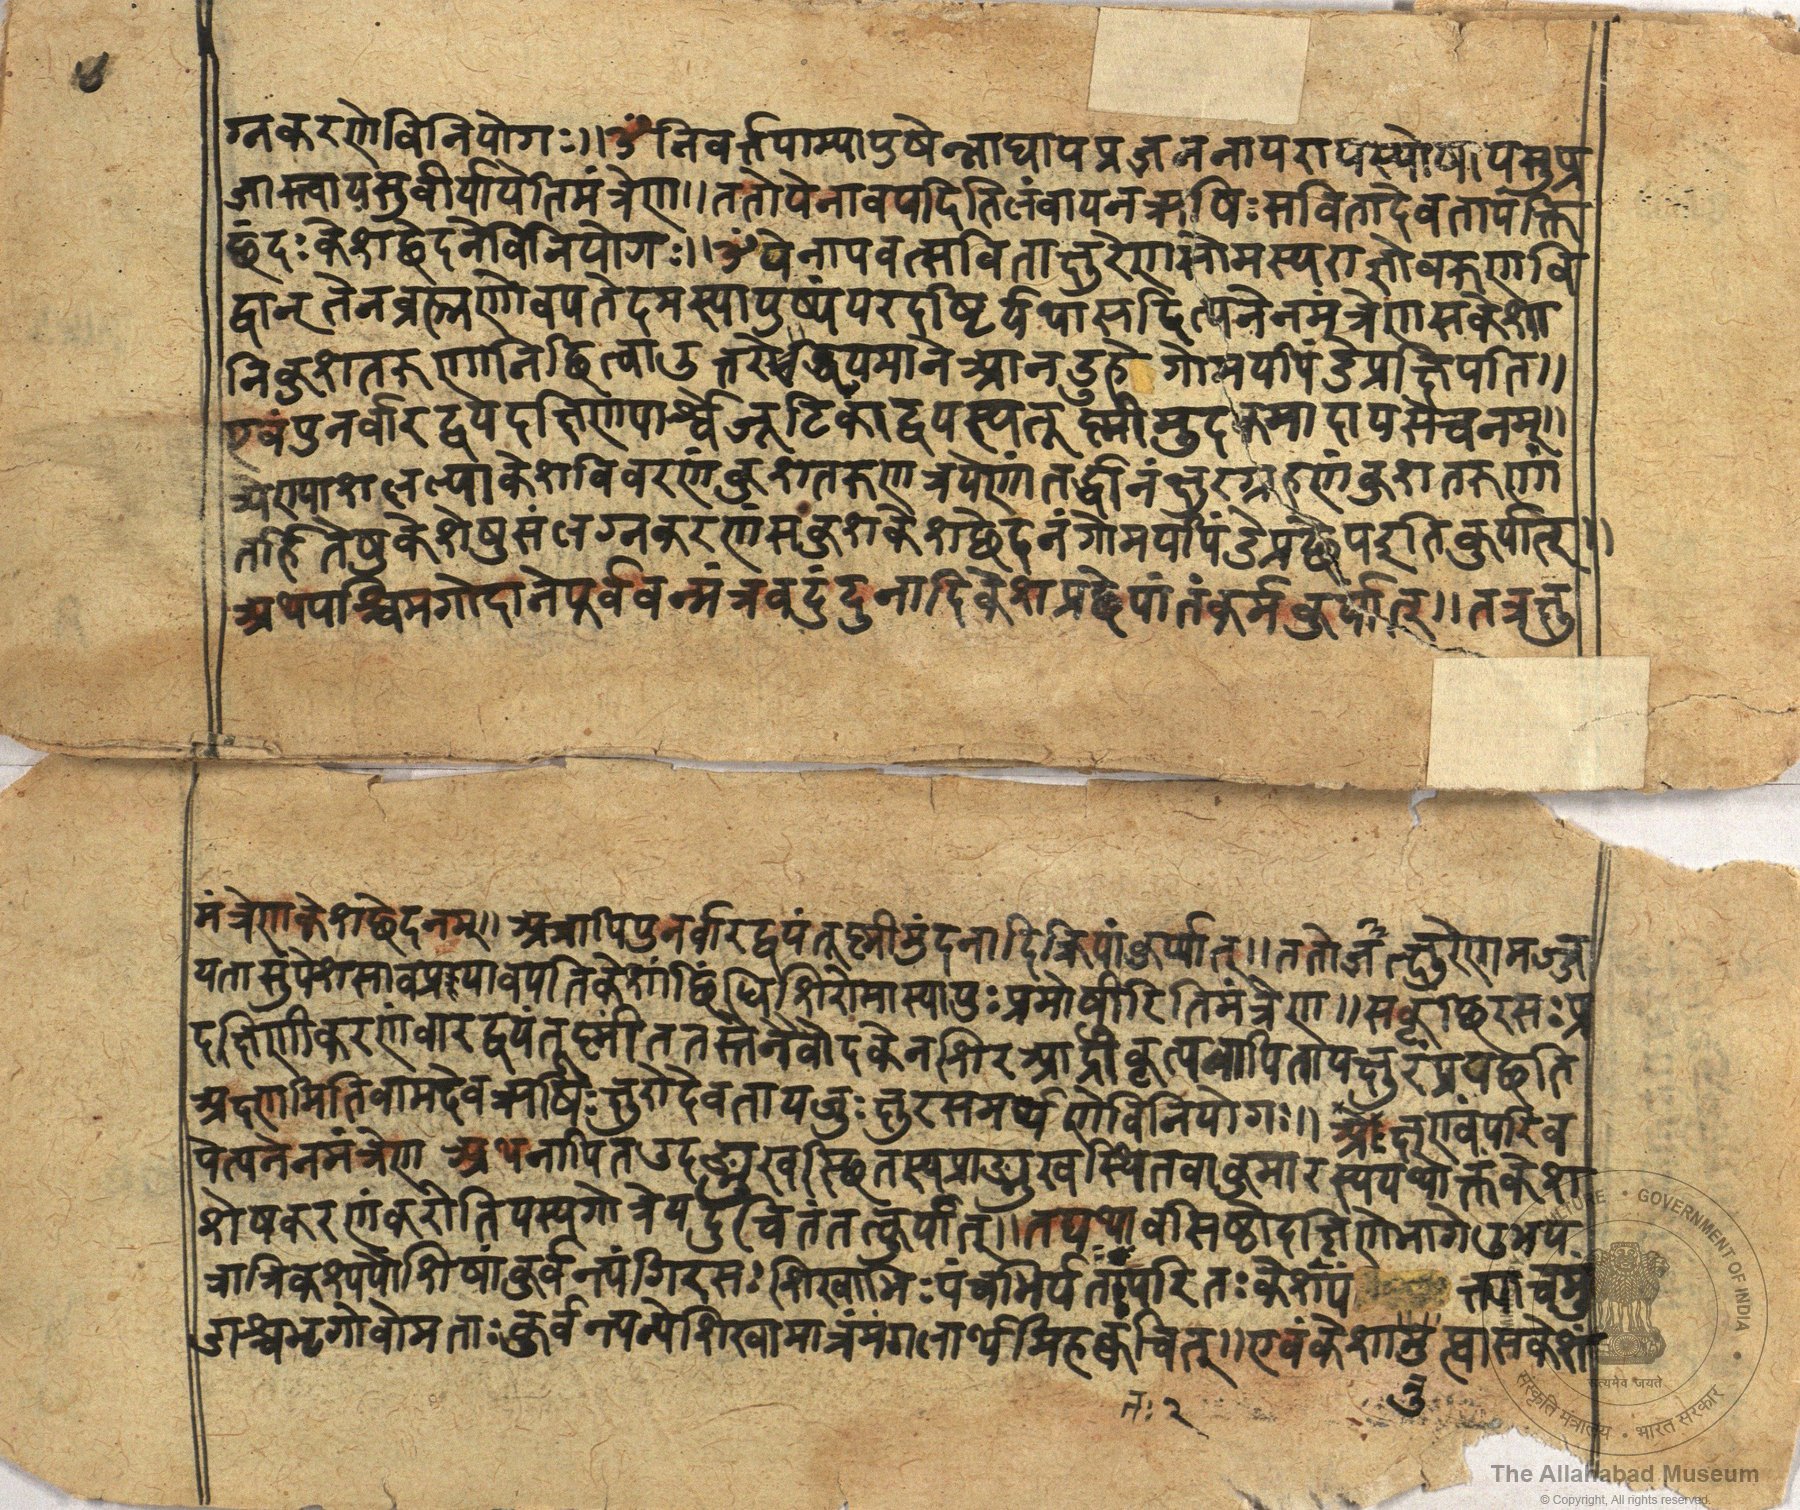 ग्नकरणेविनियोगः।।ॐ निवर्त्तयाम्यायुषेन्नाद्यायप्रजननायरायस्योषायसुप्र
जास्त्वायसुवीर्यायेतिमंत्रेण।।ततोयेनावपदितिलंवायनऋषिःसवितादेवतापंक्ति
छंदःकेशछेदनेविनियोगः।।ॐ येनापवत्सविताक्षुरेणसोमस्यराज्ञोवरुणवि
द्वान् तेनब्रह्मणोवपतेदमस्यायुष्यंपरदष्टिर्यथासदित्यनेनमंत्रेणसकेशा
निकुशतरुणानिछित्वाउत्तरे ध्रियमाने आनडुहे गोमयपिंडेप्रक्षिपति।।
एवंपुनर्वारद्वयंदक्षिणपार्श्वेजूटिकाद्वयस्यतूष्णीमुदकमादायसेचनम्।।
त्र्येण्याशलल्याकेशविवरणंकुशतरुणत्रयेणंतर्द्धानंक्षुरग्रहणंकुशतरुणां
तर्हितेषुकेशेषुसंलग्नकरणंसकुशकेशछेदनंगोमयपिंडेप्रक्षेपइतिकुर्यात्।।
अथपश्चिमगोदानेपूर्ववन्मंत्रवदुंदनादिकेशप्रक्षेपांतंकर्मकुर्यात्।।तत्रत्तु
मंत्रेणकेशछेदनम्।।अत्रापिपुनर्वारद्वयंतूष्णीमुंदनादिक्रियांकुर्यात्।।ततो क्षुरेणमज्ज
यतासुपेशसावप्रायावपतिकेशांछिंधिशिरोमास्यायुःप्रमोषीरितिमंत्रेण।।सकृछिरसःप्र
दक्षिणीकरणंवारद्वयंतूष्णींततस्तेनैवोदकेनशिरआर्द्रीकृत्यनापितायक्षुरंप्रयछति
अक्षणमितिवामदेवऋषिःक्षुरोदेवतायजुःक्षुरसमर्प्पणेविनियोगः।। अक्षण्वंपरिव
पेत्यनेनमंत्रेण अथनापितउदङ्मुखस्छितस्यप्राङ्मुखस्थितवाकुमारस्ययथोक्तंकेश
शेषकरणंकरोतियस्यगोत्रेयदुचितंतत्कुर्यात्।।तद्यथावसिष्ठोदक्षिणेभागेउभय
त्रात्रिकश्यपौशिषांकुर्वंन्त्यंगिरसःशिखाभिःपंचभिर्य परितःकेशपं त्त्याचमुं
डाश्चभृगवोमताःकुर्वन्त्यन्येशिखामात्रंमंगलार्थमिहक्वचित्।।एवंकेशा त्वासकेशं
तः२
The Allahabad Museum
© Copyright, All rights reserved.
GOVERNMENT OF INDIA
सत्यमेव जयते
संस्कृति मंत्रालय • भारत सरकार